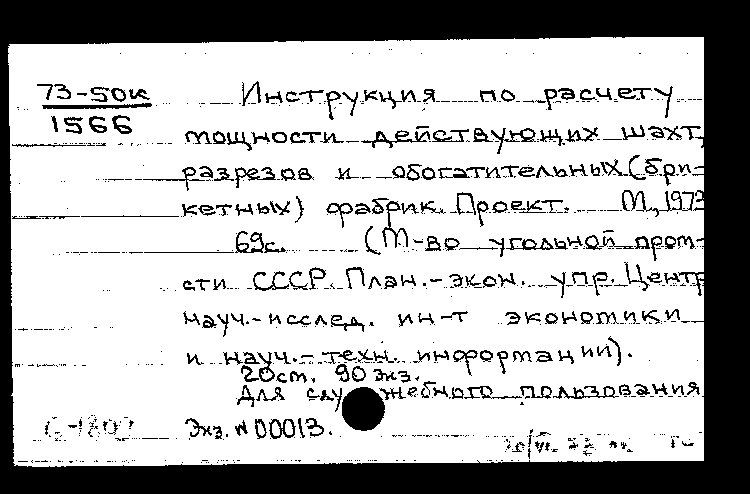 73-50к
1566
Инструкция по расчету
мощности действующих шахт,
разрезов и обогатительных (бри-
кетных) фабрик. Проект. М., 1973
69с. (М-во угольной пром-
сти СССР. План.-экон. упр. Центр
науч.-исслед. ин-т экономики
и науч.-техн. информации).
20см. 90 экз.
Для служебного пользования
Экз. № 00013.